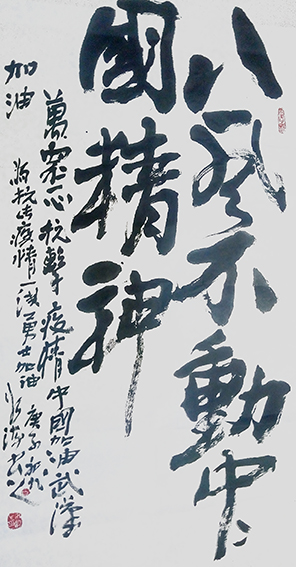 八风不動中
國精神
萬眾一心抗擊疫情中國加油武漢
加油
为抗击疫情一线勇士加油 庚子